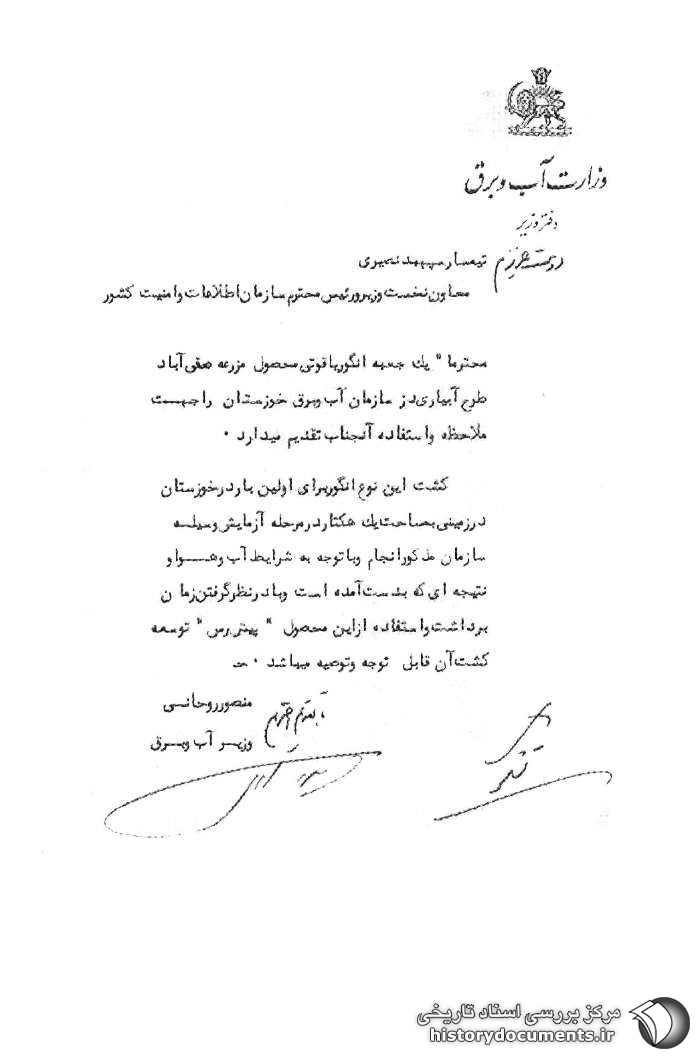 وزارت آب و برق
دفتر وزیر
دوست عزیزم تیمسار سپهبد نصیری
معاون نخست وزیر و رئیس محترم سازمان اطلاعات و امنیت کشور
محترما" یك جعبه انگور یاقوتی محصول مزرعه صفی آباد
طرح آبیاری دز سازمان آب و برق خوزستان را جهت
ملاحظه و استفاده آنجناب تقدیم میدارد .
کشت این نوع انگور برای اولین بار در خوزستان
در زمینی بمساحت یك هکتار در مرحله آزمایش وسیله
سازمان مذکور انجام و با توجه به شرایط آب و هوا و
نتیجه ای که بدست آمده است و با در نظر گرفتن زمان
برداشت و استفاده از این محصول " پیش رس " توسعه
کشت آن قابل توجه و توصیه میباشد .
با تقدیم احترام
منصور روحانی
وزیر آب و برق
تشکر
مرکز بررسی اسناد تاریخی
historydocuments.ir